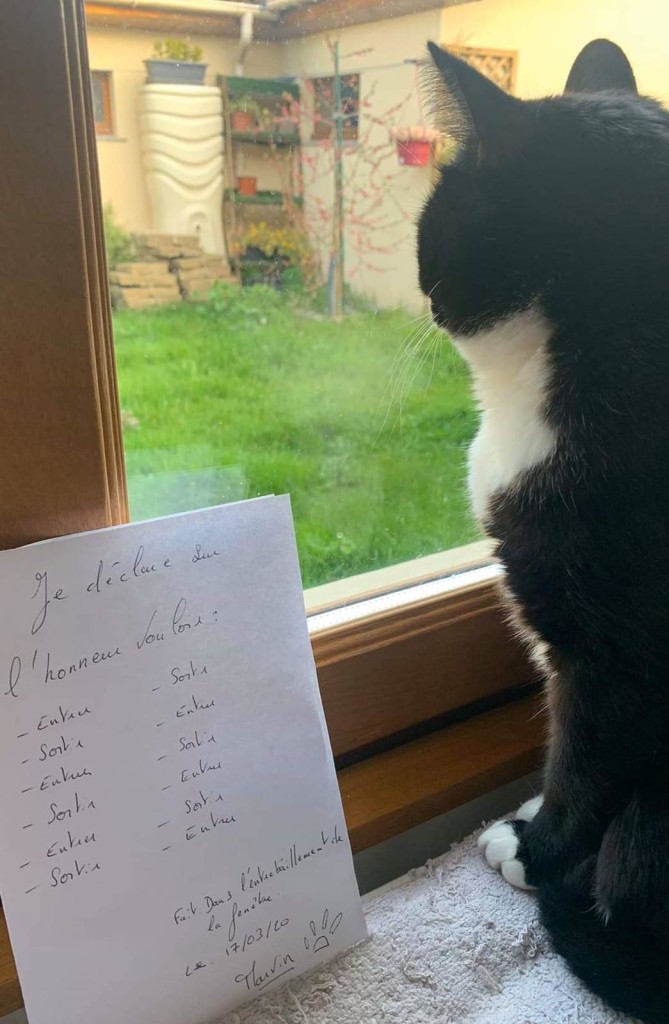 Je déclare sur
l'honneur vouloir :
- Entrer
- Sortir
- Entrer
- Sortir
- Entrer
- Sortir
- Sortir
- Entrer
- Sortir
- Entrer
- Sortir
- Entrer
Fait Dans l'entrebâillement de
la fenêtre.
Le 17/03/20